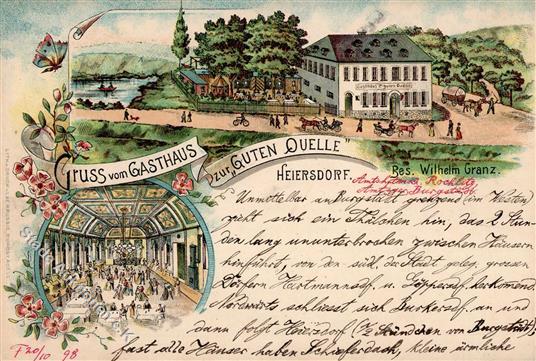 Gasthaus z. guten Quelle
Gruss vom GASTHAUS
zur „GUTEN QUELLE"
HEIERSDORF.
Res. Wilhelm Granz.
Amtsh. Rochlitz
Amtsger. Burgstädt.
Unmittelbar an Burgstädt grenzend (im Westen)
zieht sich ein Thälchen hin, das 2 Stun-
den lang ununterbrochen zwischen Häusern
hinführt, von den süd. der Stadt geleg. grossen
Dörfern Hartmannsdf. u. Göppersdf. herkomend.
Nordwärts schliesst sich Burkersdf. an und
dann folgt Heiersdorf (1/2 Stündchen von Burgstädt),
fast alle Häuser haben Schieferdach, kleine ärmliche
F 20/10 98